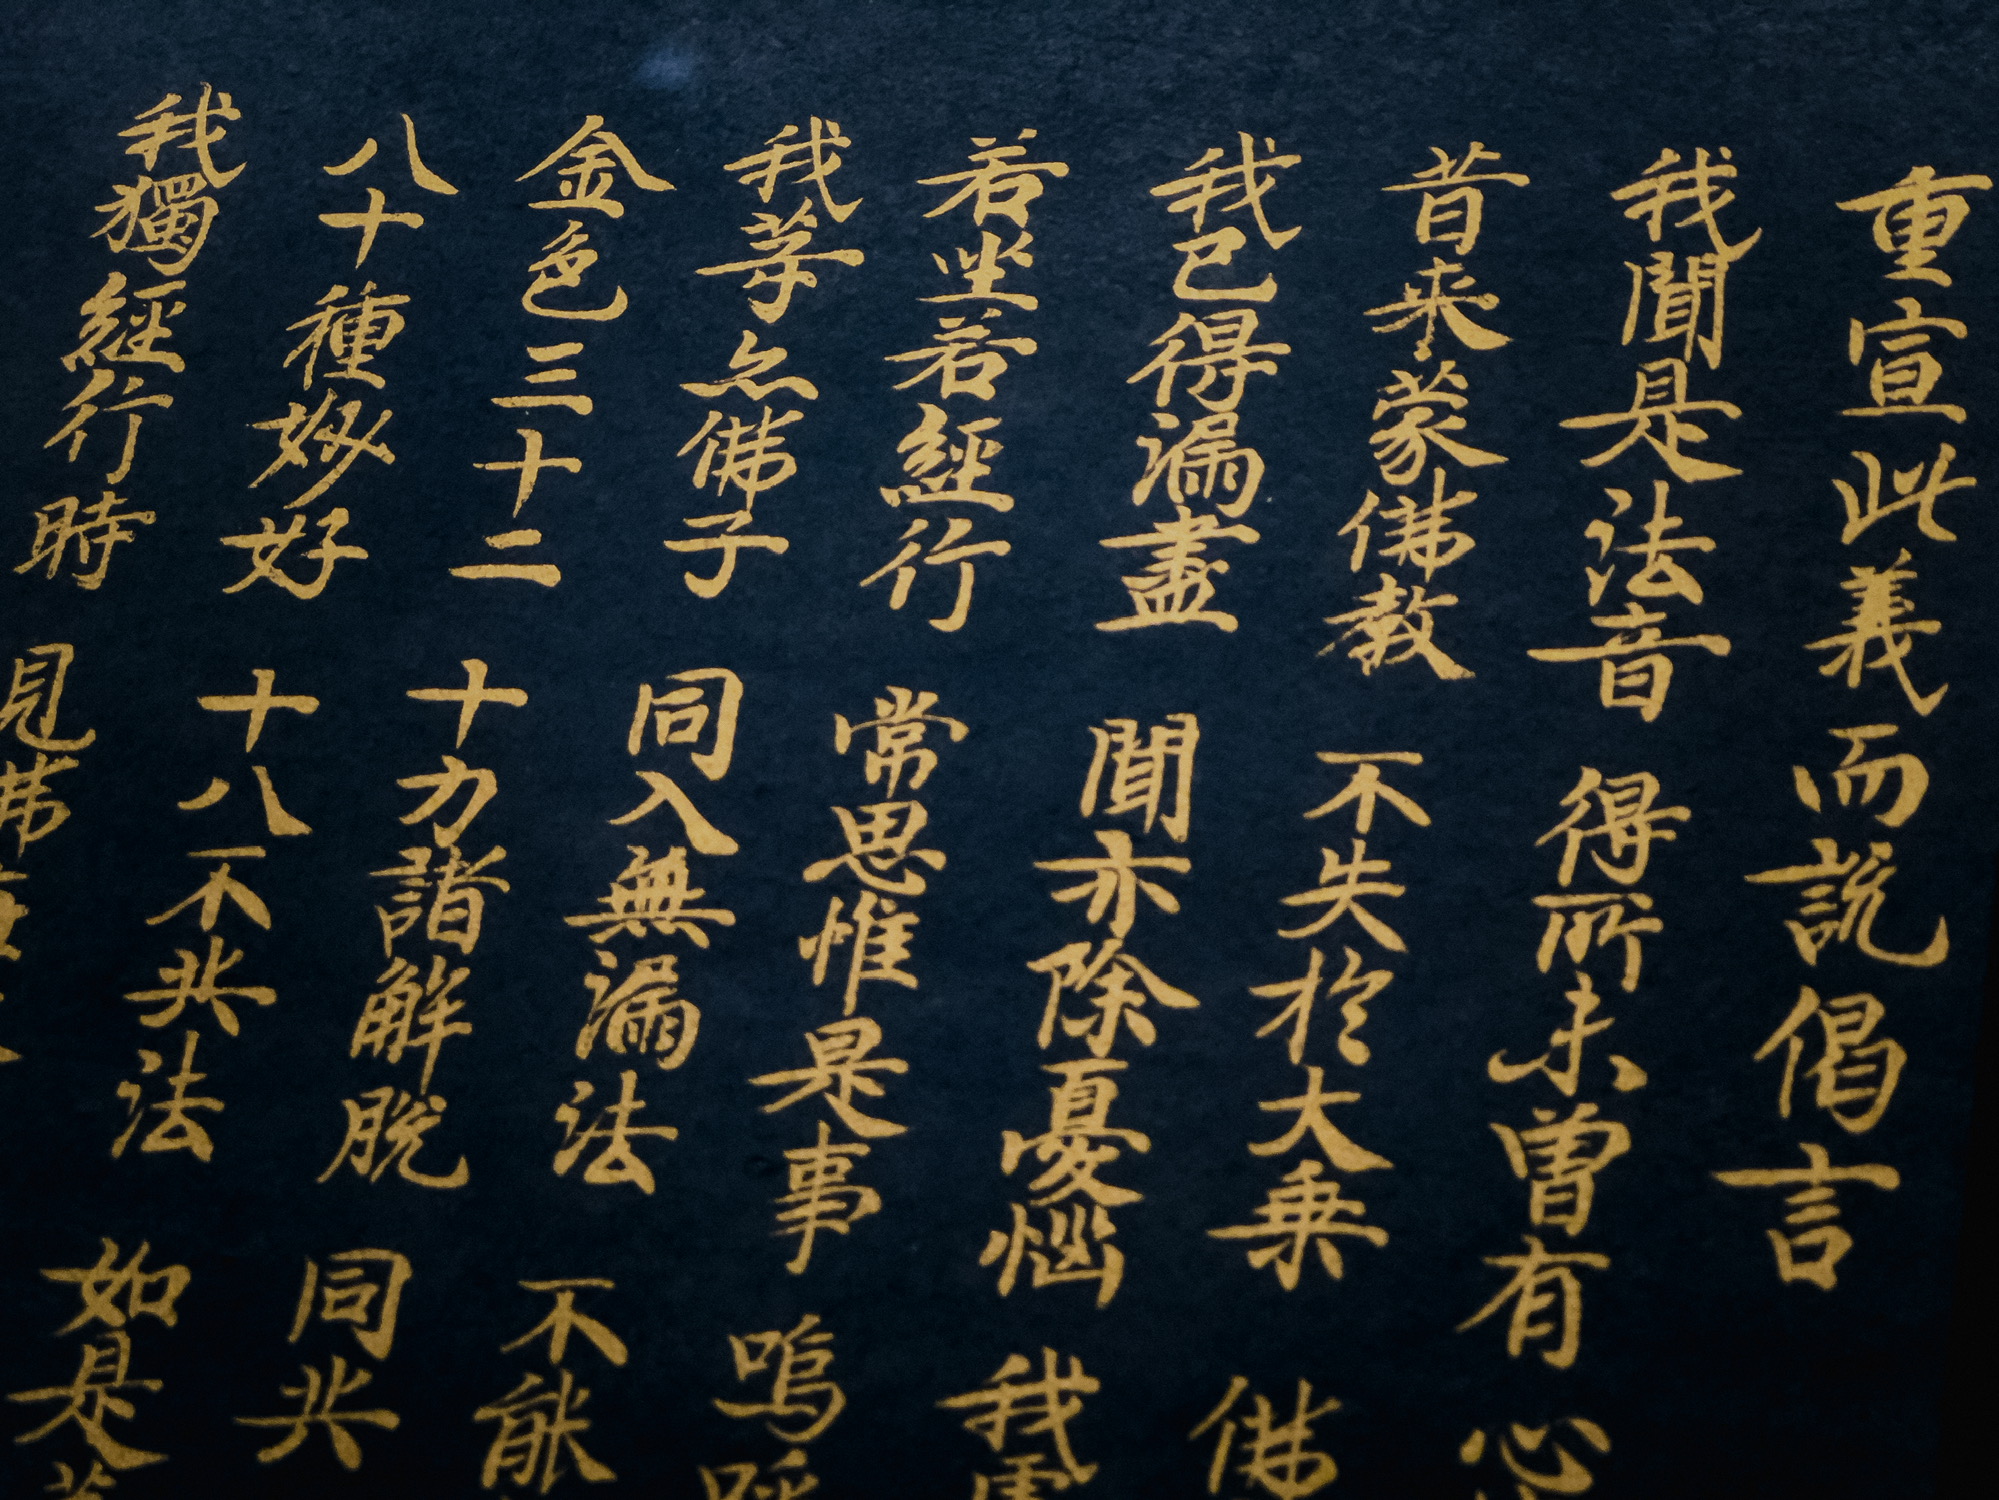 重宣此義而說偈言
我聞是法音 得所未曾有 心
昔来蒙佛教 不失於大乗 佛
我已得漏盡 聞亦除憂惱 我
若坐若經行 常思惟是事 嗚呼
我等亦佛子 同入無漏法 不能
金色三十二 十力諸解脫 同共
八十種妙好 十八不共法 如是等
我獨經行時 見佛